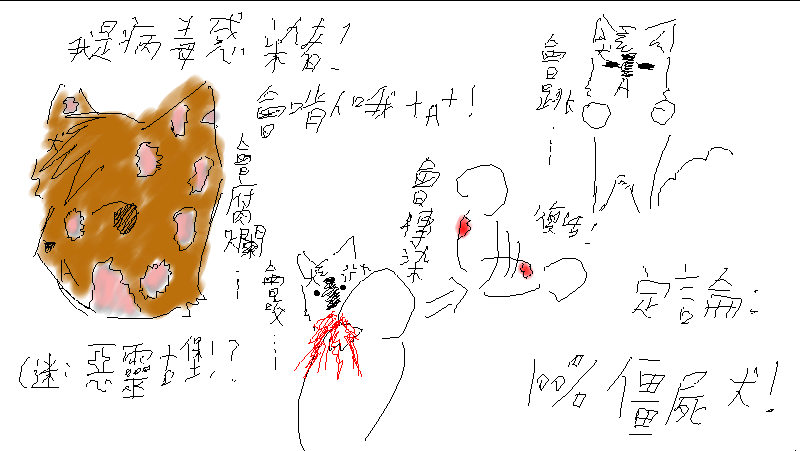 我是病毒感染者!
會啃人哦+A+!
會跳…
會腐爛…
會傳染
會咬…
優雅!
定言論:
(迷:惡靈古堡!?
100%僵屍犬!